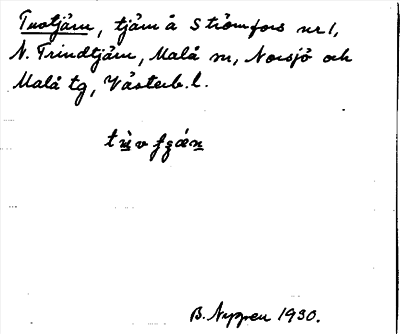 Tvotjärn, tjärn å Strömfors nr 1,
N. Trindtjärn, Malå sn, Norsjö och
Malå tg, Västerb. l.
B. Nygren 1930.